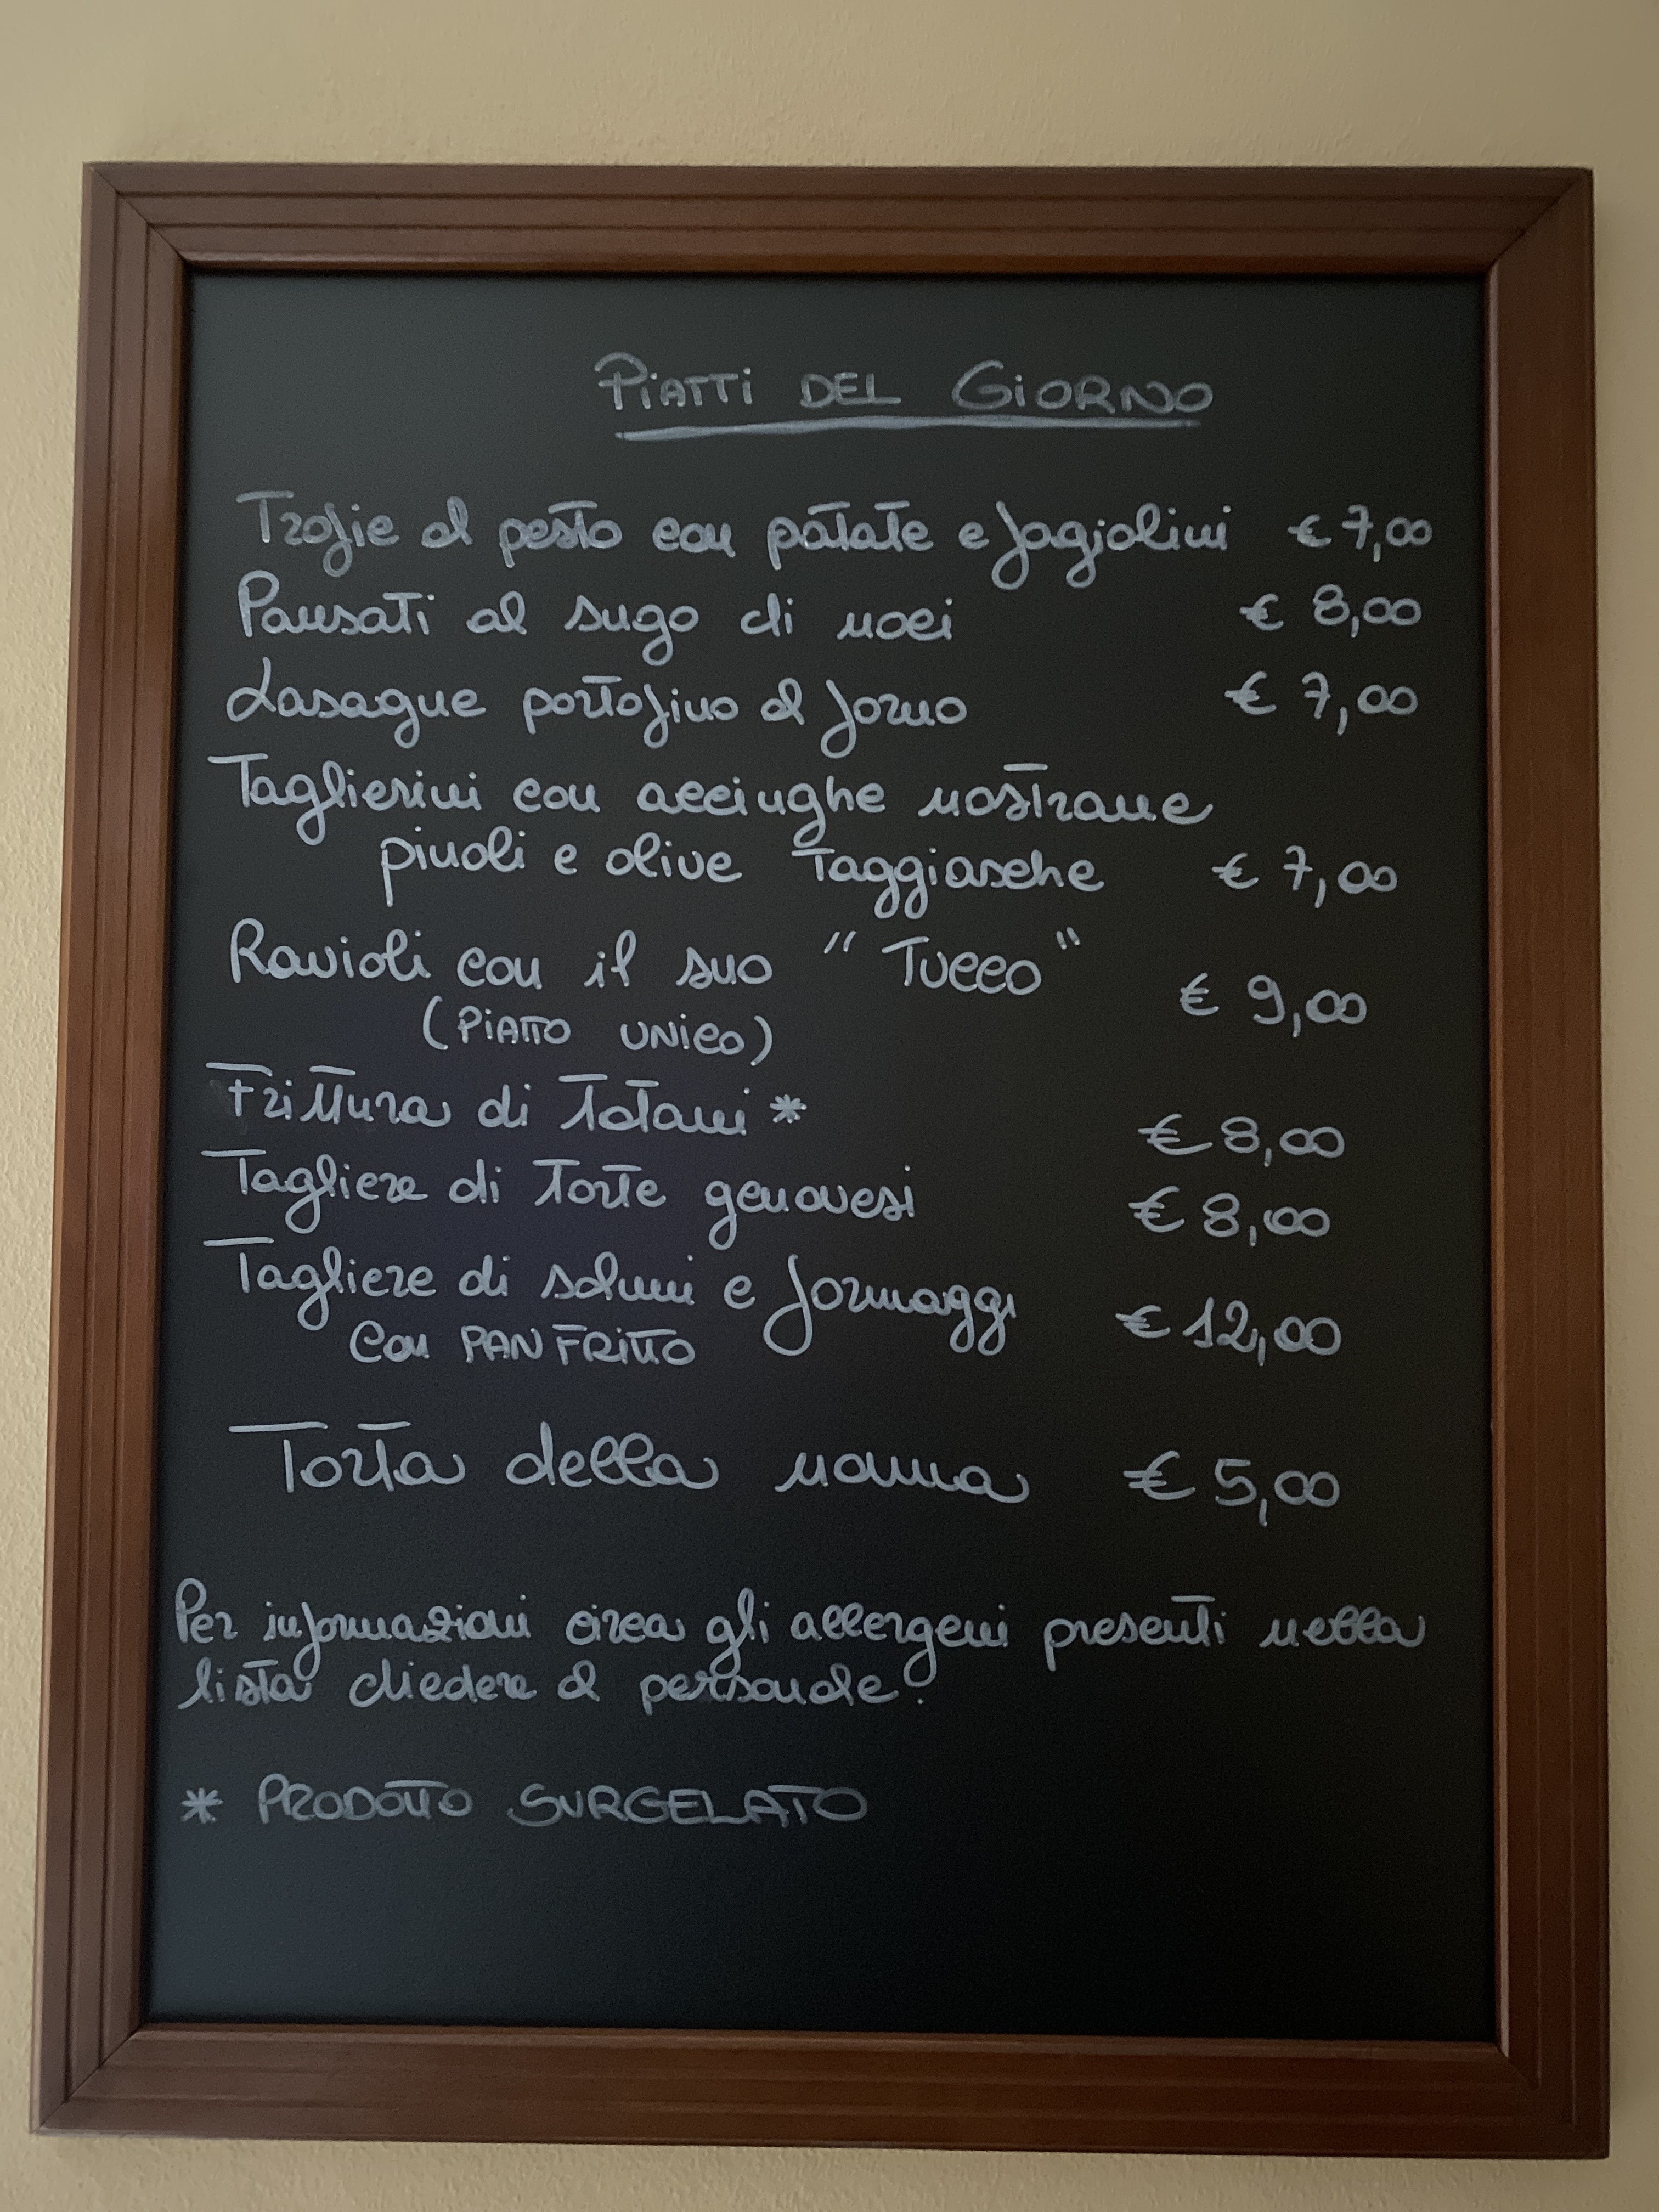 PiATTi DEL GiORNO
Trofie al pesto con patate e fagiolini € 7,00
Pansati al sugo di noci € 8,00
Lasagne portofino al forno € 7,00
Taglierini con acciughe nostrane
pinoli e olive Taggiasche € 7,00
Ravioli con il suo "Tucco" € 9,00
(PiATTO UNiCO)
Frittura di Totani * € 8,00
Tagliere di Torte genovesi € 8,00
Tagliere di salumi e formaggi € 12,00
Con PAN FRiTTO
Torta della nonna € 5,00
Per informazioni circa gli allergeni presenti nella
lista chiedere al personale.
* PRODOTTO SURGELATO